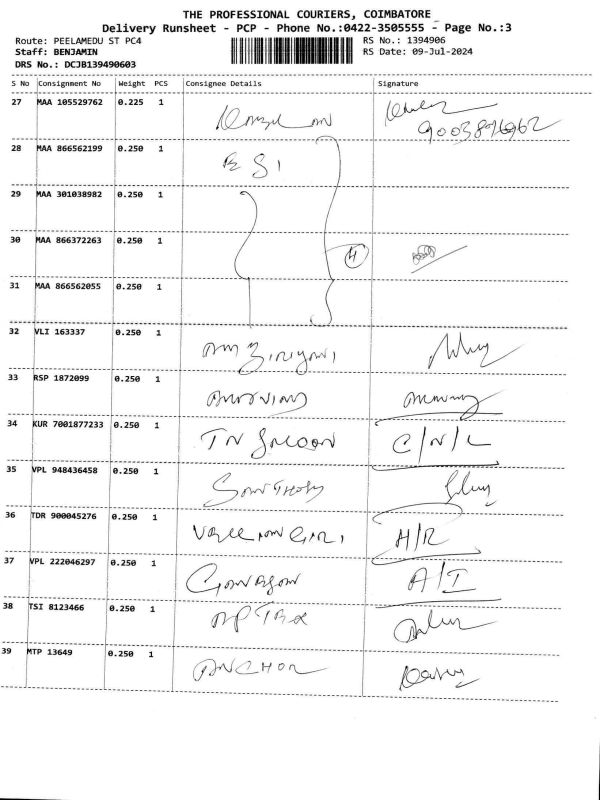 THE PROFESSIONAL COURIERS, COIMBATORE
Delivery Runsheet - PCP - Phone No.:0422-3505555 - Page No.:3
Route: PEELAMEDU ST PC4 RS No.: 1394906
Staff: BENJAMIN RS Date: 09-Jul-2024
DRS No.: DCJB139490603
S No Consignment No Weight PCS Consignee Details Signature
27 MAA 105529762 0.225 1
9003876962
28 MAA 866562199 0.250 1 ESI
29 MAA 301038982 0.250 1
30 MAA 866372263 0.250 1 4
31 MAA 866562055 0.250 1
32 VLI 163337 0.250 1
33 RSP 1872099 0.250 1
34 KUR 7001877233 0.250 1 TN SALOON C/N/L
35 VPL 948436458 0.250 1
36 TDR 900045276 0.250 1 H/R
37 VPL 222046297 0.250 1 A/I
38 TSI 8123466 0.250 1
39 MTP 13649 0.250 1 ANCHOR